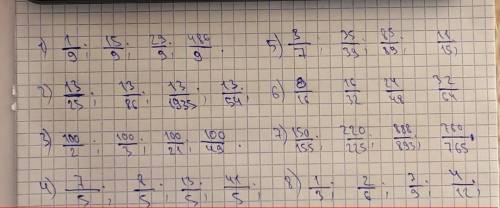 1) 1/9; 15/9; 23/9; 486/9. 5) 3/7; 35/39; 85/89; 11/15;
2) 13/25; 13/86; 13/1935; 13/54; 6) 8/16 16/32 24/48 32/64
3) 100/2; 100/3; 100/21; 100/49. 7) 150/155; 220/225; 888/893; 760/765.
4) 7/5; 8/5; 13/5; 41/5; 8) 1/3; 2/6; 3/9; 4/12;